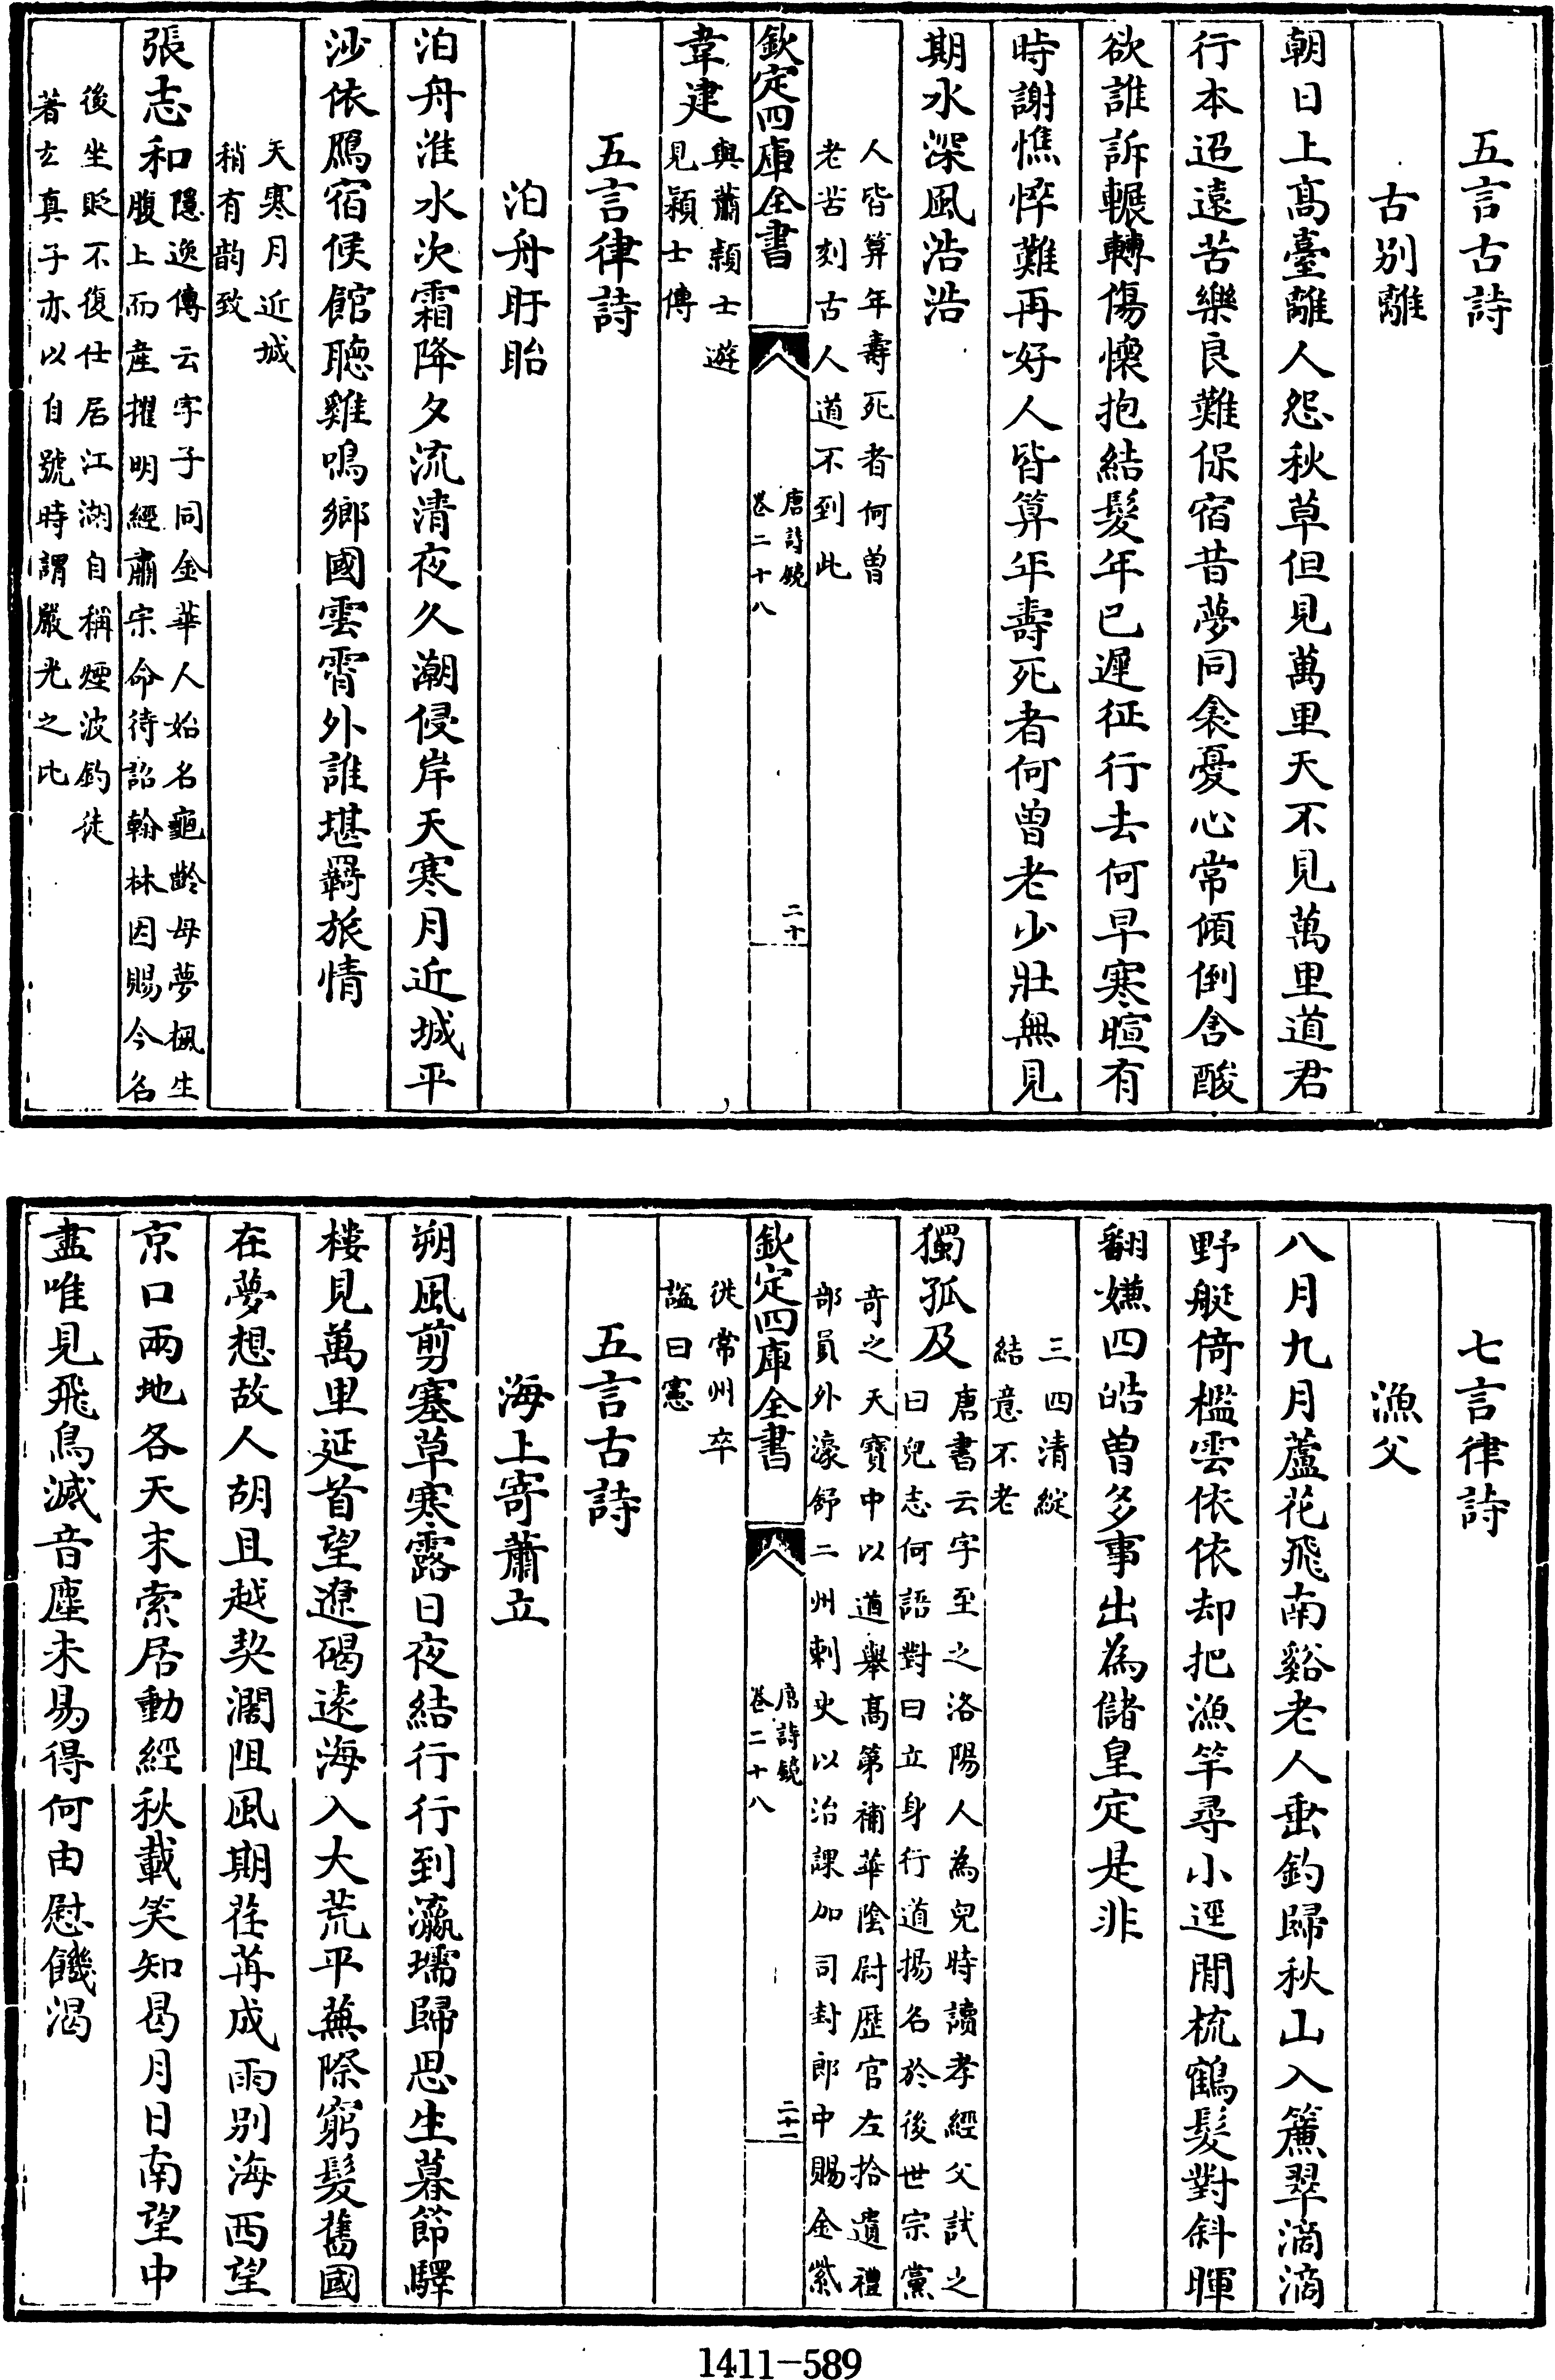 五言古詩
古別離
朝日上高臺離人怨秋草但見萬里天不見萬里道君
行本迢遠苦樂良難保宿昔夢同衾憂心常傾倒含酸
欲誰訴輾轉傷懷抱結髮年已遲征行去何早寒暄有
時謝憔悴難再好人皆算年壽死者何曾老少壯無見
期水深風浩浩
人皆算年壽死者何曾
老苦刻古人道不到此
欽定四庫全書
唐詩鏡
卷二十八
二十
韋建
與蕭穎士遊
見穎士傳
五言律詩
泊舟盱眙
泊舟淮水次霜降夕流清夜久潮侵岸天寒月近城平
沙依鴈宿候館聽雞鳴鄉國雲霄外誰堪羇旅情
天寒月近城
稍有韵致
張志和
隱逸傳云字子同金華人始名龜齡母夢楓生
腹上而産擢明經肅宗命待詔翰林因賜今名
後坐貶不復仕居江湖自稱煙波釣徒
著玄真子亦以自號時謂嚴光之比
七言律詩
漁父
八月九月蘆花飛南谿老人垂釣歸秋山入簾翠滴滴
野艇倚檻雲依依却把漁竿尋小逕閒梳鶴髮對斜暉
翻嫌四皓曾多事出為儲皇定是非
三四清綻
結意不老
獨孤及
唐書云字至之洛陽人為兒時讀孝經父試之
曰兒志何語對曰立身行道揚名於後世宗黨
奇之天寶中以道舉高第補華陰尉歷官左拾遺禮
部員外濠舒二州刺史以治課加司封郎中賜金紫
欽定四庫全書
唐詩鏡
卷二十八
二十一
徙常州卒
謚曰憲
五言古詩
海上寄蕭立
朔風剪塞草寒露日夜結行行到瀛壖歸思生暮節驛
樓見萬里延首望遼碣遠海入大荒平蕪際窮髮舊國
在夢想故人胡且越契濶阻風期荏苒成雨別海西望
京口兩地各天末索居動經秋載笑知曷月日南望中
盡唯見飛鳥滅音塵未易得何由慰饑渴
1411—589